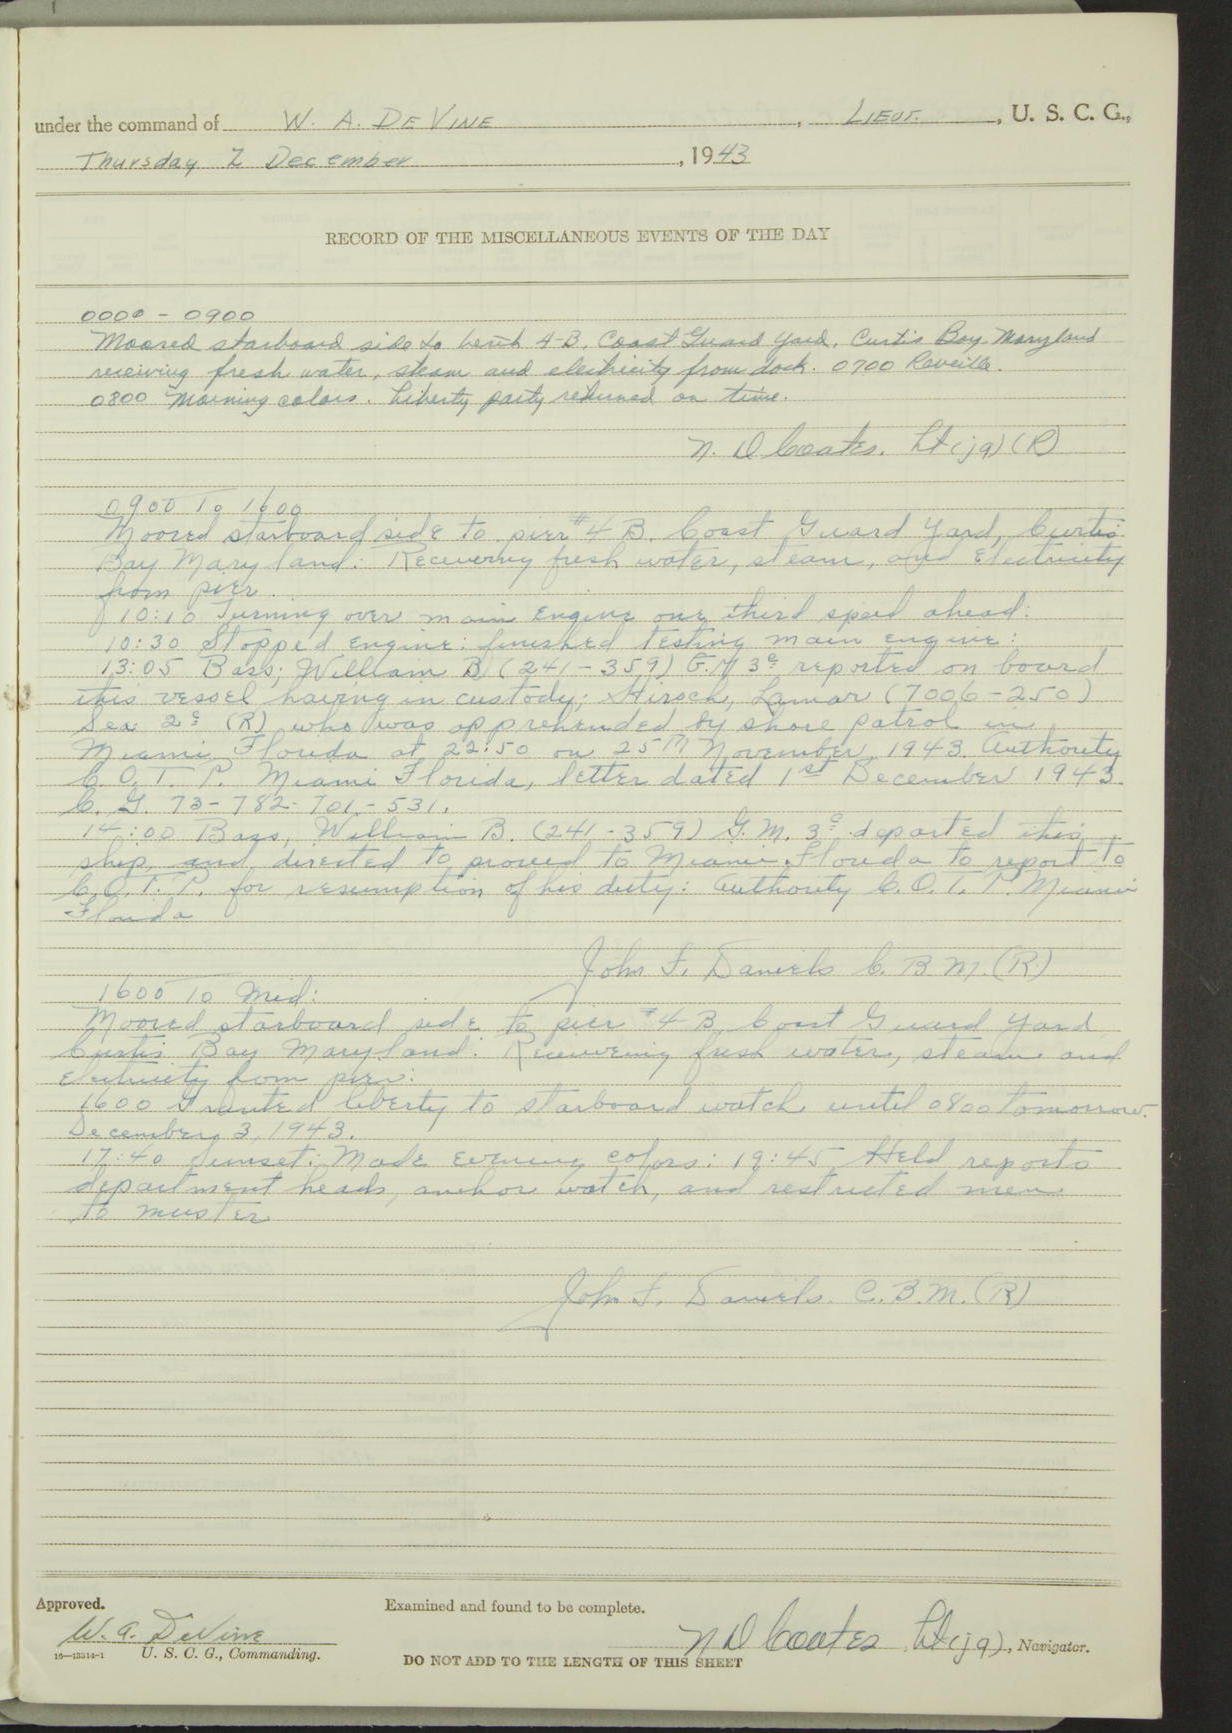 under the command of W. A. DE VINE, LIEUT., U. S. C. G.,
Thursday 2 December, 1943
RECORD OF THE MISCELLANEOUS EVENTS OF THE DAY
0000 - 0900
Moored starboard side to berth 4-B, Coast Guard Yard, Curtis Bay Maryland
receiving fresh water, steam and electricity from dock. 0700 Reveille.
0800 Morning colors. Liberty party returned on time.
N. D Coates. Lt (jg) (R)
0900 To 1600
Moored starboard side to pier #4 B. Coast Guard Yard, Curtis
Bay Maryland: Receiving fresh water, steam, and Electricity
from pier.
10:10 Turning over main Engine one third speed ahead:
10:30 Stopped Engine: finished Testing main engine:
13:05 Bass; William B (241-359) G.M 3c reported on board
this vessel having in custody; Hirsch, Lamar (7006-250)
Sea 2c (R) who was apprehended by shore patrol in
Miami Florida at 22:50 on 25th November 1943. Authority
C.O.T.P. Miami Florida, letter dated 1st December 1943.
C. G. 73-782-701-531.
14:00 Bass, William B. (241-359) G.M. 3c departed this
ship, and directed to proceed to Miami Florida to report to
C.O.T.P. for resumption of his duty: Authority C.O.T.P. Miami
Florida
John F. Daniels C. B. M. (R)
1600 To Mid:
Moored starboard side to pier #4 B, Coast Guard Yard
Curtis Bay Maryland: Receiving fresh water, steam and
Electricity from pier:
1600 Granted liberty to starboard watch until 0800 tomorrow.
December 3, 1943.
17:40 Sunset: Made Evening colors: 19:45 Held reports
department heads, anchor watch, and restricted men
to muster
John F. Daniels. C.B.M. (R)
Approved.
Examined and found to be complete.
W. A. DeVine
N D Coates Lt (jg), Navigator.
16—13514-1 U. S. C. G., Commanding.
DO NOT ADD TO THE LENGTH OF THIS SHEET